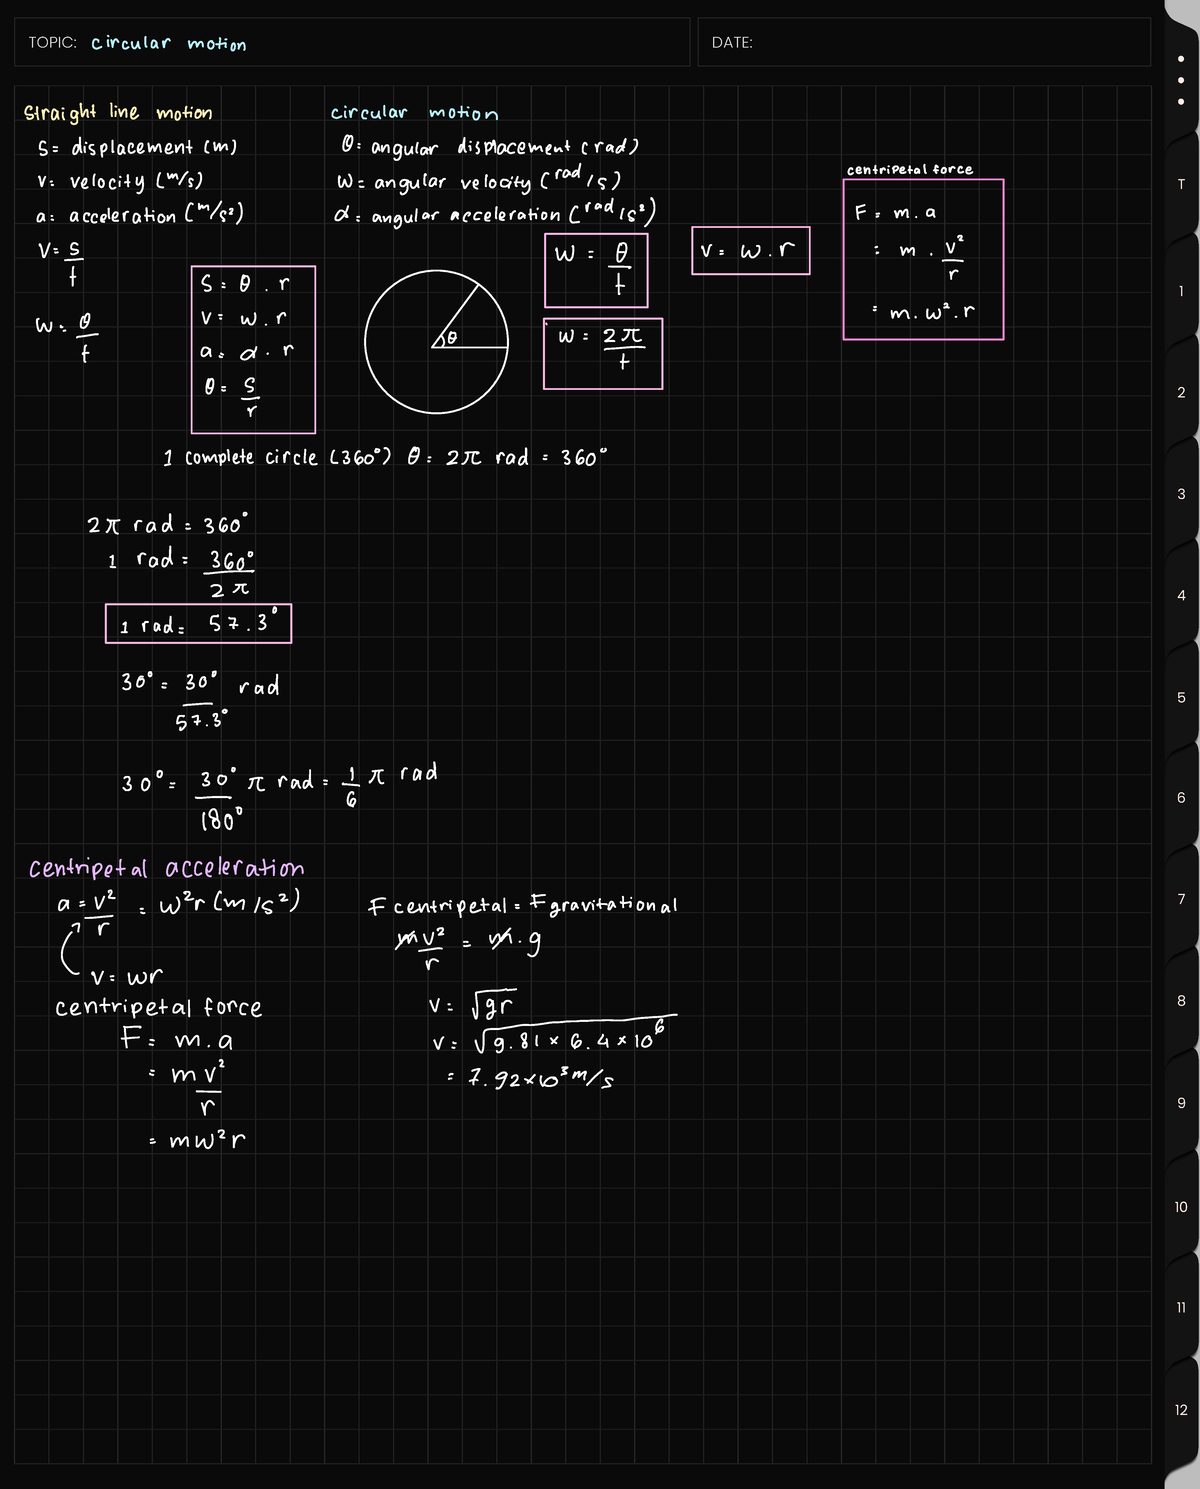 TOPIC: circular motion
DATE:
straight line motion
S = displacement (m)
v = velocity (m/s)
a = acceleration (m/s²)
v = s/t
ω = θ/t
circular motion
θ = angular displacement (rad)
ω = angular velocity (rad/s)
α = angular acceleration (rad/s²)
S = θ . r
v = ω . r
a = α . r
θ = s/r
θ
ω = θ/t
ω = 2π/t
v = ω . r
centripetal force
F = m . a
= m . v²/r
= m . ω² . r
1 complete circle (360°) θ = 2π rad = 360°
2π rad = 360°
1 rad = 360°/2π
1 rad = 57.3°
30° = 30°/57.3° rad
30° = 30°/180° π rad = 1/6 π rad
centripetal acceleration
a = v²/r = ω²r (m/s²)
v = ωr
centripetal force
F = m.a
= mv²/r
= mω²r
F centripetal = F gravitational
mv²/r = m.g
v = √gr
v = √9.81 × 6.4 × 10⁶
= 7.92×10³ m/s
T
1
2
3
4
5
6
7
8
9
10
11
12